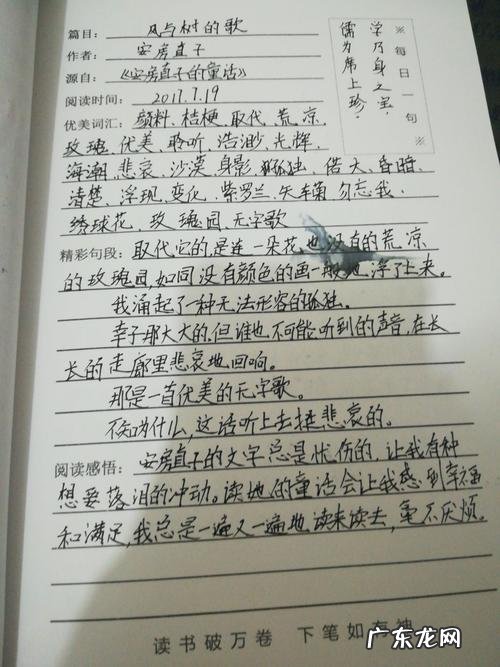 篇目: 风与树的歌
作者: 安房直子
源自: 《安房直子的童话》
阅读时间: 2017.7.19
※每日一句※
学乃身之宝,
儒为席上珍.
优美词汇: 颜料、桔梗、取代、荒凉、
玫瑰、优美、聆听、浩渺、光辉、
海潮、悲哀、沙漠、身影、孤独、偌大、昏暗、
清楚、浮现、变化、紫罗兰、矢车菊、勿忘我、
绣球花、玫瑰园、无字歌
精彩句段: 取代它的,是连一朵花也没有的荒凉
的玫瑰园,如同没有颜色的画一般地浮了上来。
我涌起了一种无法形容的孤独。
幸子那大大的,但谁也不可能听到的声音,在长
长的走廊里悲哀地回响。
那是一首优美的无字歌。
不知为什么,这话听上去挺悲哀的。
阅读感悟: 安房直子的文字总是忧伤的,让我有种
想要落泪的冲动。读她的童话会让我感到幸福
和满足,我总是一遍又一遍地读来读去,毫不厌烦。
读书破万卷 下笔如有神
广东龙网